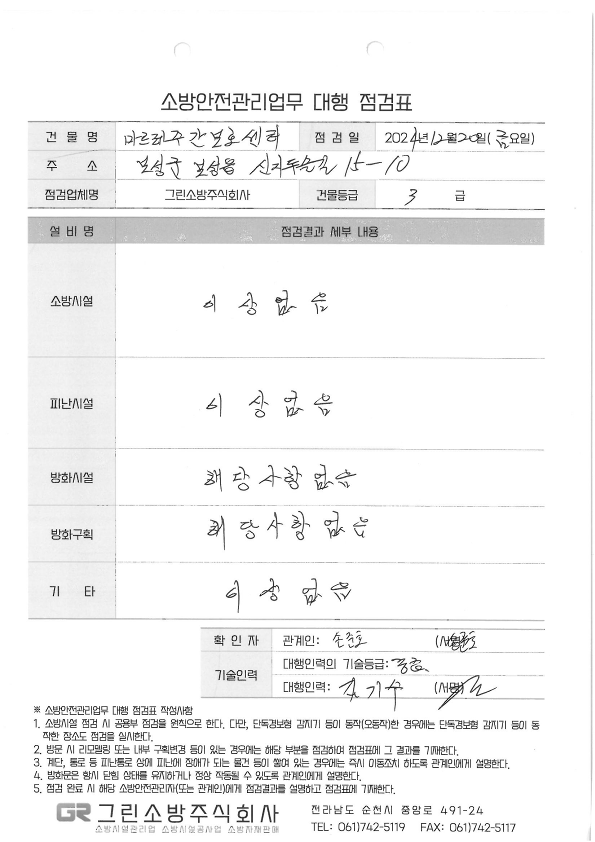 소방안전관리업무 대행 점검표
건 물 명 마르레주간보호센타 점 검 일 2024년 12월 20일(금요일)
주 소 보성군 보성읍 15-10
점검업체명 그린소방주식회사 건물등급 3 급
설 비 명 점검결과 세부 내용
소방시설 이 상 없 음
피난시설 이 상 없 음
방화시설 해당사항 없음
방화구획 해당사항 없음
기 타 이 상 없 음
확 인 자 관계인: 손준호 (서명)
기술인력 대행인력의 기술등급: 중급
대행인력: 김기수 (서명)
※ 소방안전관리업무 대행 점검표 작성사항
1. 소방시설 점검 시 공용부 점검을 원칙으로 한다. 다만, 단독경보형 감지기 등이 동작(오동작)한 경우에는 단독경보형 감지기 등이 동
작한 장소도 점검을 실시한다.
2. 방문 시 리모델링 또는 내부 구획변경 등이 있는 경우에는 해당 부분을 점검하여 점검표에 그 결과를 기재한다.
3. 계단, 통로 등 피난통로 상에 피난에 장애가 되는 물건 등이 쌓여 있는 경우에는 즉시 이동조치 하도록 관계인에게 설명한다.
4. 방화문은 항시 닫힘 상태를 유지하거나 정상 작동될 수 있도록 관계인에게 설명한다.
5. 점검 완료 시 해당 소방안전관리자(또는 관계인)에게 점검결과를 설명하고 점검표에 기재한다.
GR 그린소방주식회사 전라남도 순천시 중앙로 491-24
소방시설관리업 소방시설공사업 소방자재판매 TEL: 061)742-5119 FAX: 061)742-5117